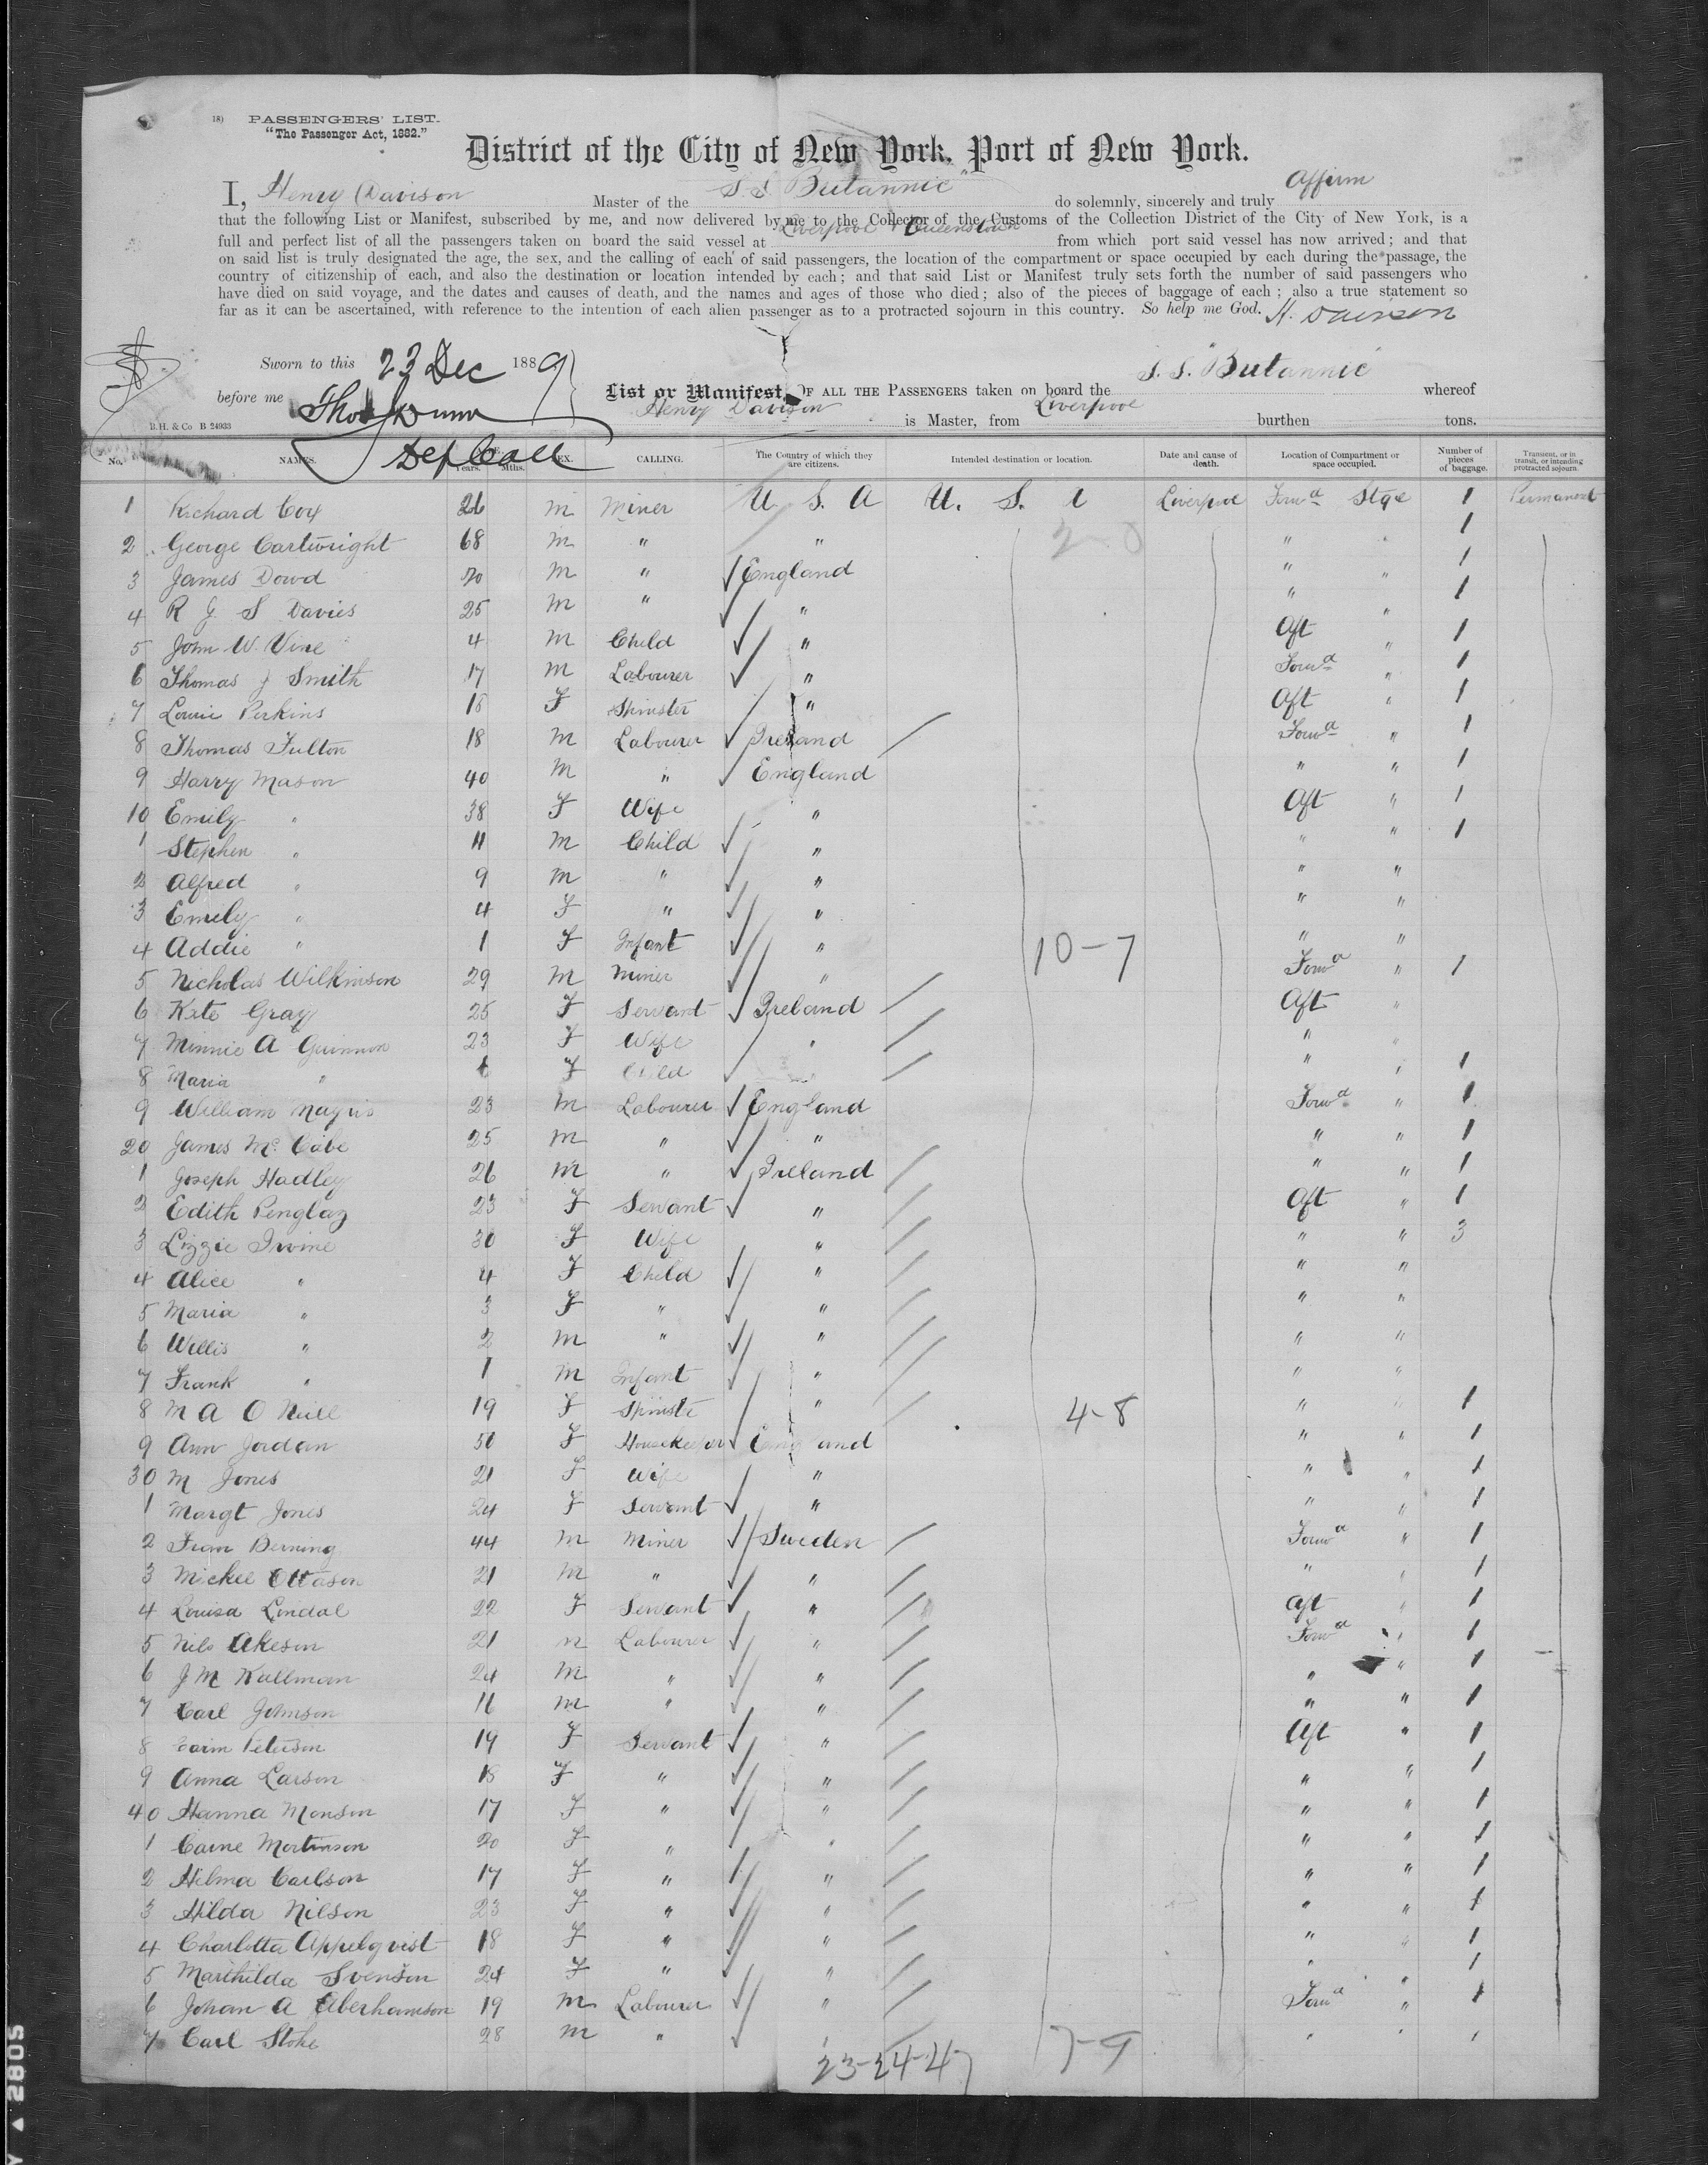 18) PASSENGERS' LIST.
"The Passenger Act, 1882."
District of the City of New York, Port of New York.
I, Henry Davison Master of the S.S. Britannic do solemnly, sincerely and truly affirm
that the following List or Manifest, subscribed by me, and now delivered by me to the Collector of the Customs of the Collection District of the City of New York, is a
full and perfect list of all the passengers taken on board the said vessel at Liverpool & Queenstown from which port said vessel has now arrived; and that
on said list is truly designated the age, the sex, and the calling of each of said passengers, the location of the compartment or space occupied by each during the passage, the
country of citizenship of each, and also the destination or location intended by each; and that said List or Manifest truly sets forth the number of said passengers who
have died on said voyage, and the dates and causes of death, and the names and ages of those who died; also of the pieces of baggage of each; also a true statement so
far as it can be ascertained, with reference to the intention of each alien passenger as to a protracted sojourn in this country. So help me God. H. Davison
Sworn to this 23 Dec 1889
before me Thos Dunn
Dep Coll
List or Manifest, OF ALL THE PASSENGERS taken on board the S.S. Britannic whereof
Henry Davison is Master, from Liverpool burthen tons.
B.H. & Co B 24933
No. NAMES. Years. Mths. SEX. CALLING. The Country of which they are citizens. Intended destination or location. Date and cause of death. Location of Compartment or space occupied. Number of pieces of baggage. Transient, or in transit, or intending protracted sojourn.
1 Richard Cox 26 m Miner U. S. A U. S. A Liverpool Forwd Stge 1 Permanent
2 George Cartwright 68 m " " " " 1
3 James Dowd 20 m " England " " 1
4 R J S Davies 25 m " " " " 1
5 John W. Vine 4 m Child " Aft " 1
6 Thomas J Smith 17 m Labourer " Forwd " 1
7 Louie Perkins 18 F Spinster " Aft " 1
8 Thomas Fulton 18 m Labourer Ireland Forwd " 1
9 Harry Mason 40 m " England " " 1
10 Emily " 38 F Wife " Aft " 1
1 Stephen " 11 m Child " " " 1
2 Alfred " 9 m " " " "
3 Emily " 4 F " " " "
4 Addie " 1 F Infant " " "
10-7
5 Nicholas Wilkinson 29 m Miner " Forwd " 1
6 Kate Gray 25 F Servant Ireland Aft "
7 Minnie A Guinnon 23 F Wife " " "
8 Maria " F Child " " 1
9 William 23 m Labourer England Forwd " 1
20 James Mc Cabe 25 m " " " " 1
1 Joseph Hadley 26 m " Ireland " " 1
2 Edith Penglaz 23 F Servant " Aft " 1
3 Lizzie Irvine 30 F Wife " " " 3
4 Alice " 4 F Child " " "
5 Maria " 3 F " " " "
6 Willis " 2 m " " " "
7 Frank " 1 m Infant " " "
8 M A O Neill 19 F Spinster " " " 1
4-8
9 Ann Jordan 50 F Housekeeper England " " 1
30 M Jones 21 F Wife " " " 1
1 Margt Jones 24 F Servant " " " 1
2 Fran Berning 44 m Miner Sweden Forwd " 1
3 Mickel Ottason 21 m " " " " 1
4 Louisa Lindal 22 F Servant " Aft " 1
5 Nils Akeson 21 m Labourer " Forwd " 1
6 J M Kallman 24 m " " " " 1
7 Carl Johnson 16 m " " " " 1
8 Peterson 19 F Servant " Aft " 1
9 Anna Larson 18 F " " " " 1
40 Hanna Monson 17 F " " " " 1
1 Carne Mortinson 20 F " " " " 1
2 Hilma Carlson 17 F " " " " 1
3 Hilda Nilson 23 F " " " " 1
4 Charlotta Appelqvist 18 F " " " " 1
5 Marthilda Svenson 24 F " " " " 1
6 Johan A Aberhamson 19 m Labourer " Forwd " 1
7 Carl Stohe 28 m " " " " 1
23-24-47
7-9